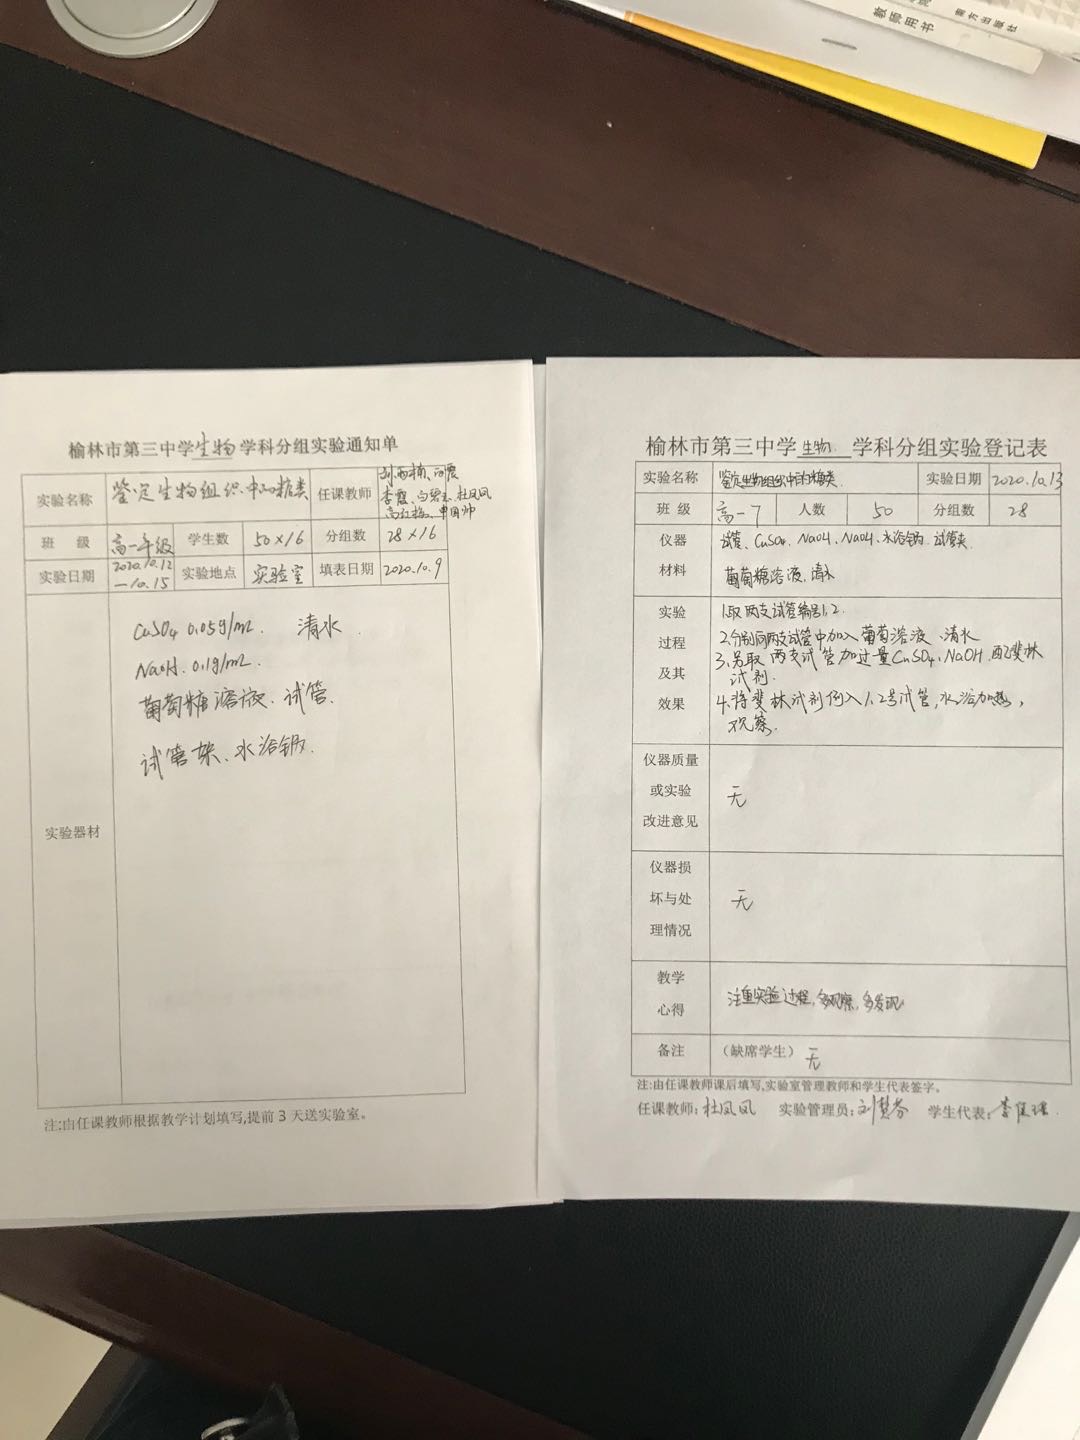 教师用书
南方出版社
榆林市第三中学生物学科分组实验通知单
实验名称 鉴定生物组织中的糖类 任课教师
李霞、白碧玉、杜凤凤
高红梅、申国帅
班 级 高一年级 学生数 50×16 分组数 28×16
实验日期 2020.10.12—10.15 实验地点 实验室 填表日期 2020.10.9
实验器材
CuSO4 0.05g/mL. 清水
NaOH. 0.1g/mL.
葡萄糖溶液. 试管.
试管架、水浴锅.
注:由任课教师根据教学计划填写,提前3天送实验室。
榆林市第三中学 生物 学科分组实验登记表
实验名称 鉴定生物组织中的糖类 实验日期 2020.10.13
班 级 高一7 人数 50 分组数 28
仪器 试管、CuSO4、NaOH、NaOH、水浴锅、试管夹
材料 葡萄糖溶液、清水
实验 1.取两支试管编号1,2.
过程 2.分别向两支试管中加入葡萄溶液、清水
及其 3.另取两支试管加过量CuSO4、NaOH.配斐林
试剂.
效果 4.将斐林试剂倒入1.2号试管,水浴加热,
观察.
仪器质量
或实验 无
改进意见
仪器损
坏与处 无
理情况
教学
心得 注重实验过程,多观察,多发现
备注 (缺席学生) 无
注:由任课教师课后填写,实验室管理教师和学生代表签字。
任课教师:杜凤凤 实验管理员:刘慧芬 学生代表: